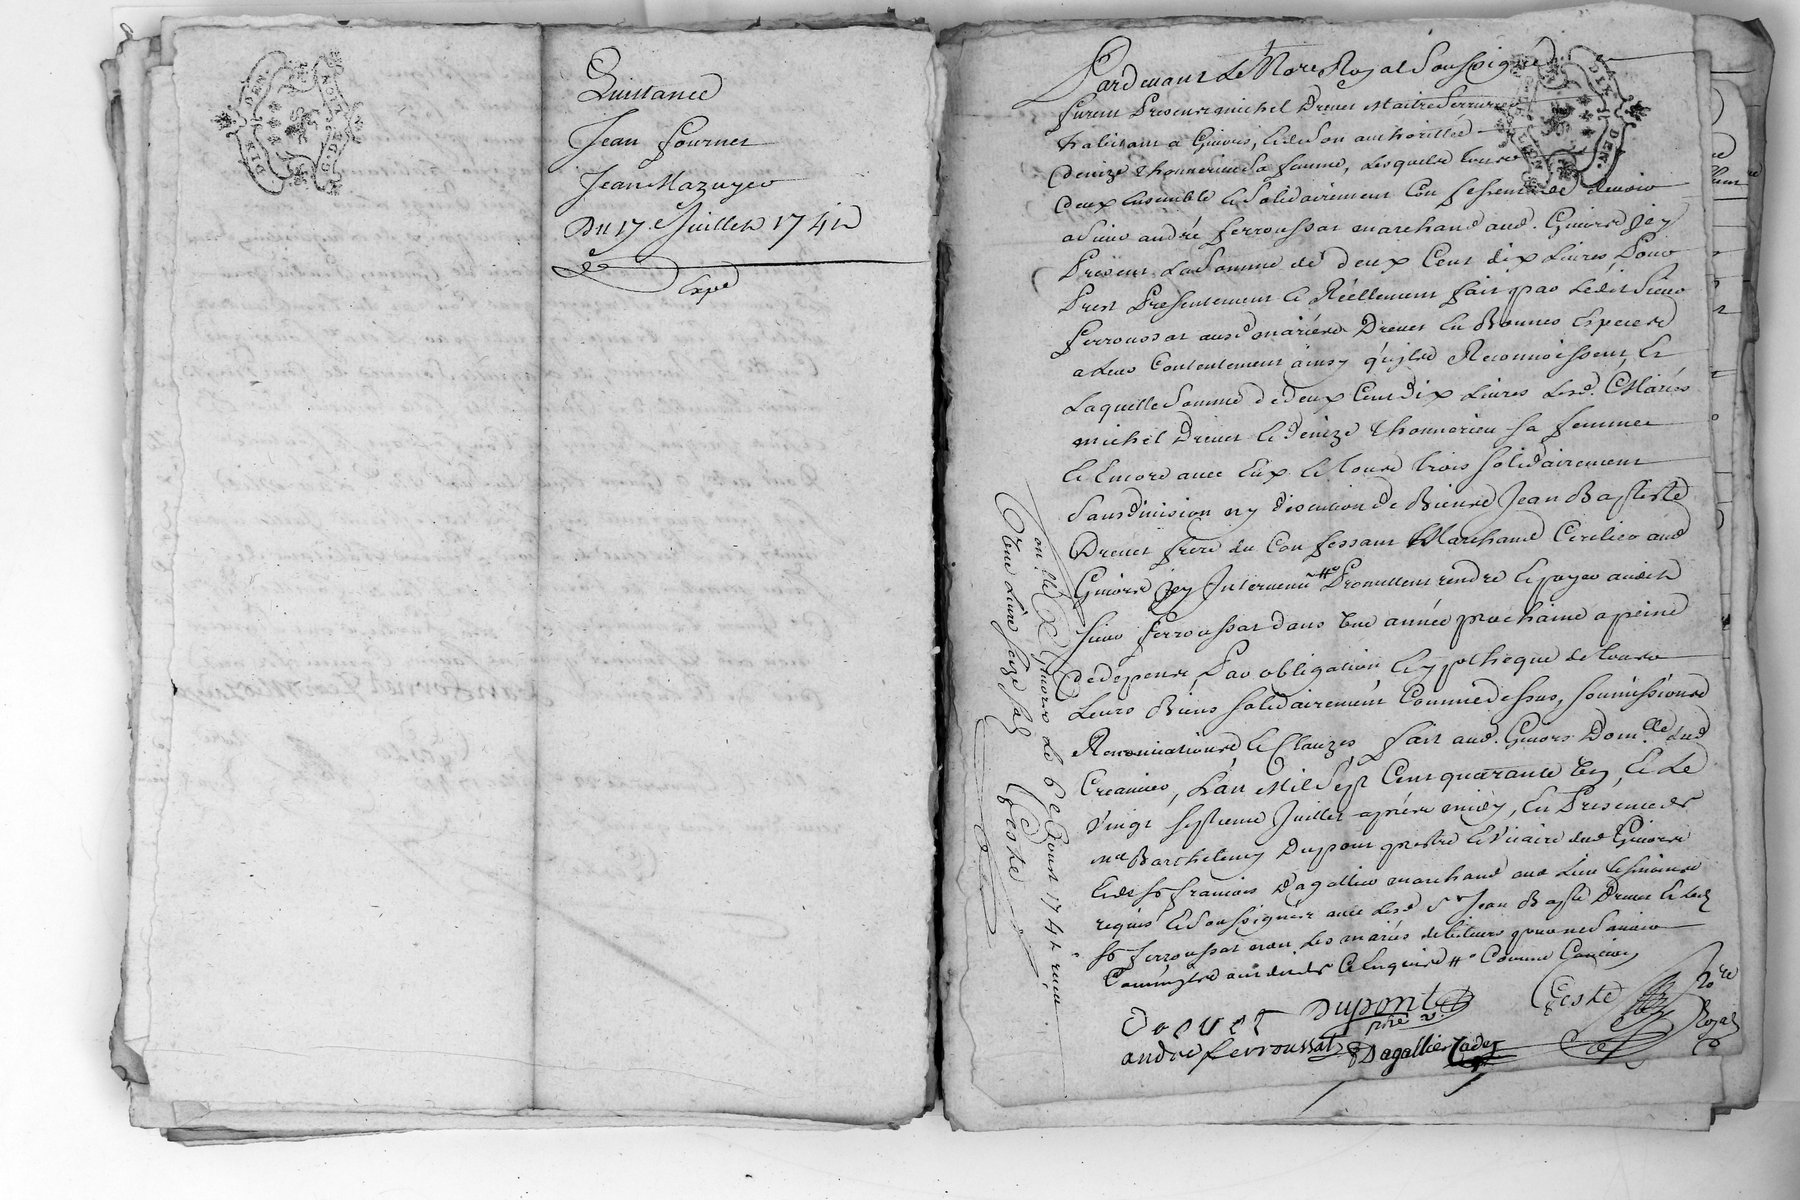 DIX DEN.
G. DE LION
Quittance
Jean fournet
Jean Mazuyer
Du 17e Juillet 1741
Expé
Pardevant Le Nore Royal Soussigné
furent Presents michel Drevet Maitre Serrurier
habitant a Givors, et de son authorité
denize thonnerieu Sa femme, Lesquels tous
deux Ensemble et Solidairement Confessent de devoir
a Sieur andré ferroussat marchand aud. Givors jcy
Present La Somme de deux Cent dix Livres, Pour
Prest Presentement et Réellement fait par Ledit Sieur
ferroussat ausd mariés Drevet En Bonnes Especes
a Leur Contentement ainsy qu'ils Reconnoissent, Et
Laquelle Somme de deux Cent Dix Livres Lesd. Mariés
michel Drevet et denize thonnerieu sa femme
Et Encore avec Eux et tous trois solidairement
Sans division ny discution de Biens Jean Baptiste
Drevet frere du Confessant Marchand Cirilier aud
Givors jcy Intervenu Promettent rendre et payer audit
sieur ferroussat dans Une année prochaine a peine
de depens Par obligation et ypotheque de tous
Leurs Biens solidairement Comme dessus, soumissions
Renonciations, et Clauzes fait aud. Givors Domlle dud
Creancier, L'an Mil Sept Cent quarante Un, et Le
vingt septieme Juillet après midy, En Presence de
me Barthelemy Dupont prestre et vicaire dud Givors
et de sr francois Dagallier marchand aud Lieu tesmoins
requis et Soussignés avec Lesd Sr Jean Baptte Drevet et led
sr ferroussat non Les mariés debiteurs pour ne Savoir
Comme Caution
Drevet
Dupont
ptre v.
Ceste
Nore
Royal
andré ferroussat
Dagallier Cadet
Conllé A Givors Le 6e Aoust 1741 reçu
Une Livre seize sols
Ceste
DIX DEN.